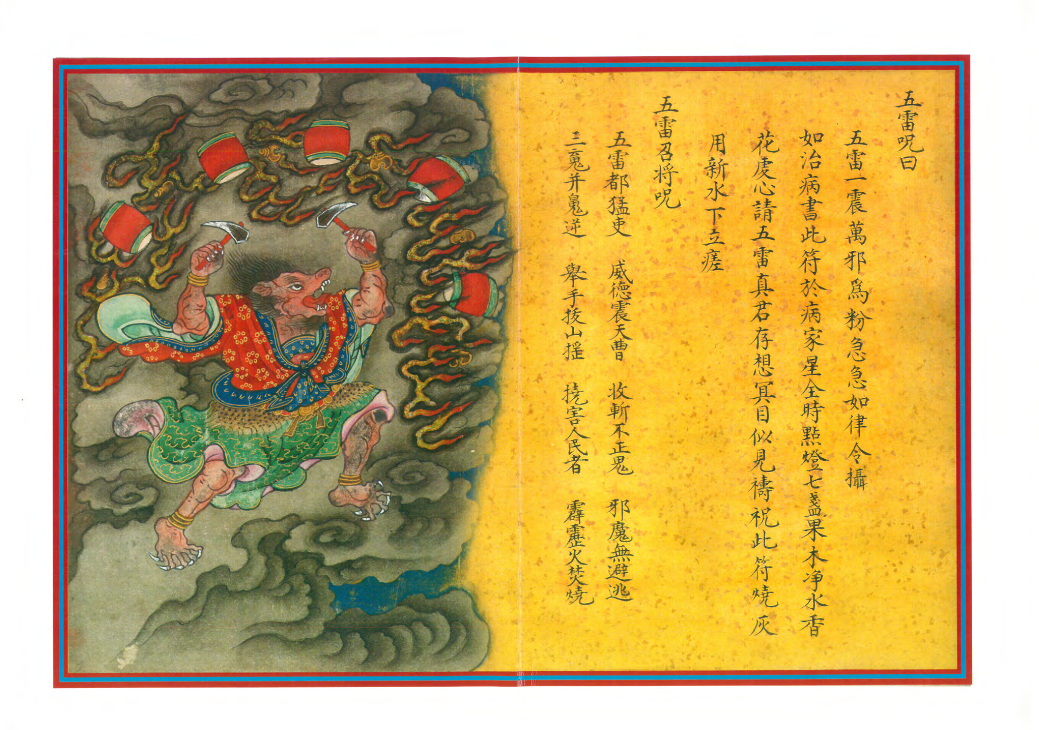 五雷呪曰
五雷一震萬邪爲粉急急如律令攝
如治病書此符於病家星全時點燈七盞果木净水香
花虔心請五雷真君存想冥目似見禱祝此符燒灰
用新水下立瘥
五雷召将呪
五雷都猛吏 威德震天曹 收斬不正鬼 邪魔無避逃
三魂并鬼逆 舉手拔山摇 撓害人民者 霹靂火焚燒